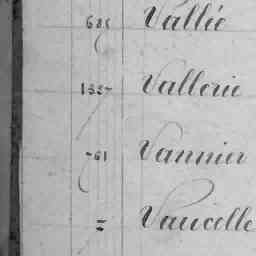 Vallée
Vallerie
761 Vannier
= Vaucelle